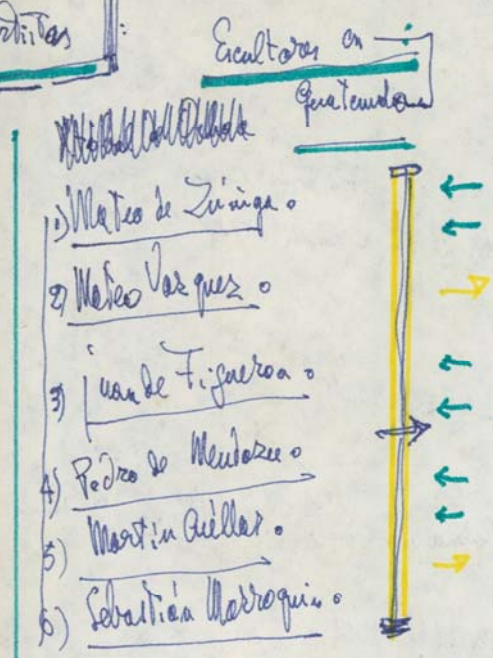 Artistas :
Escultores en
Guatemala
1) Mateo de Zúniga.
2) Mateo Vazquez.
3) Juan de Figueroa.
4) Pedro de Mendoza.
5) Martin Cuéllar.
6) Sebastián Marroquin.